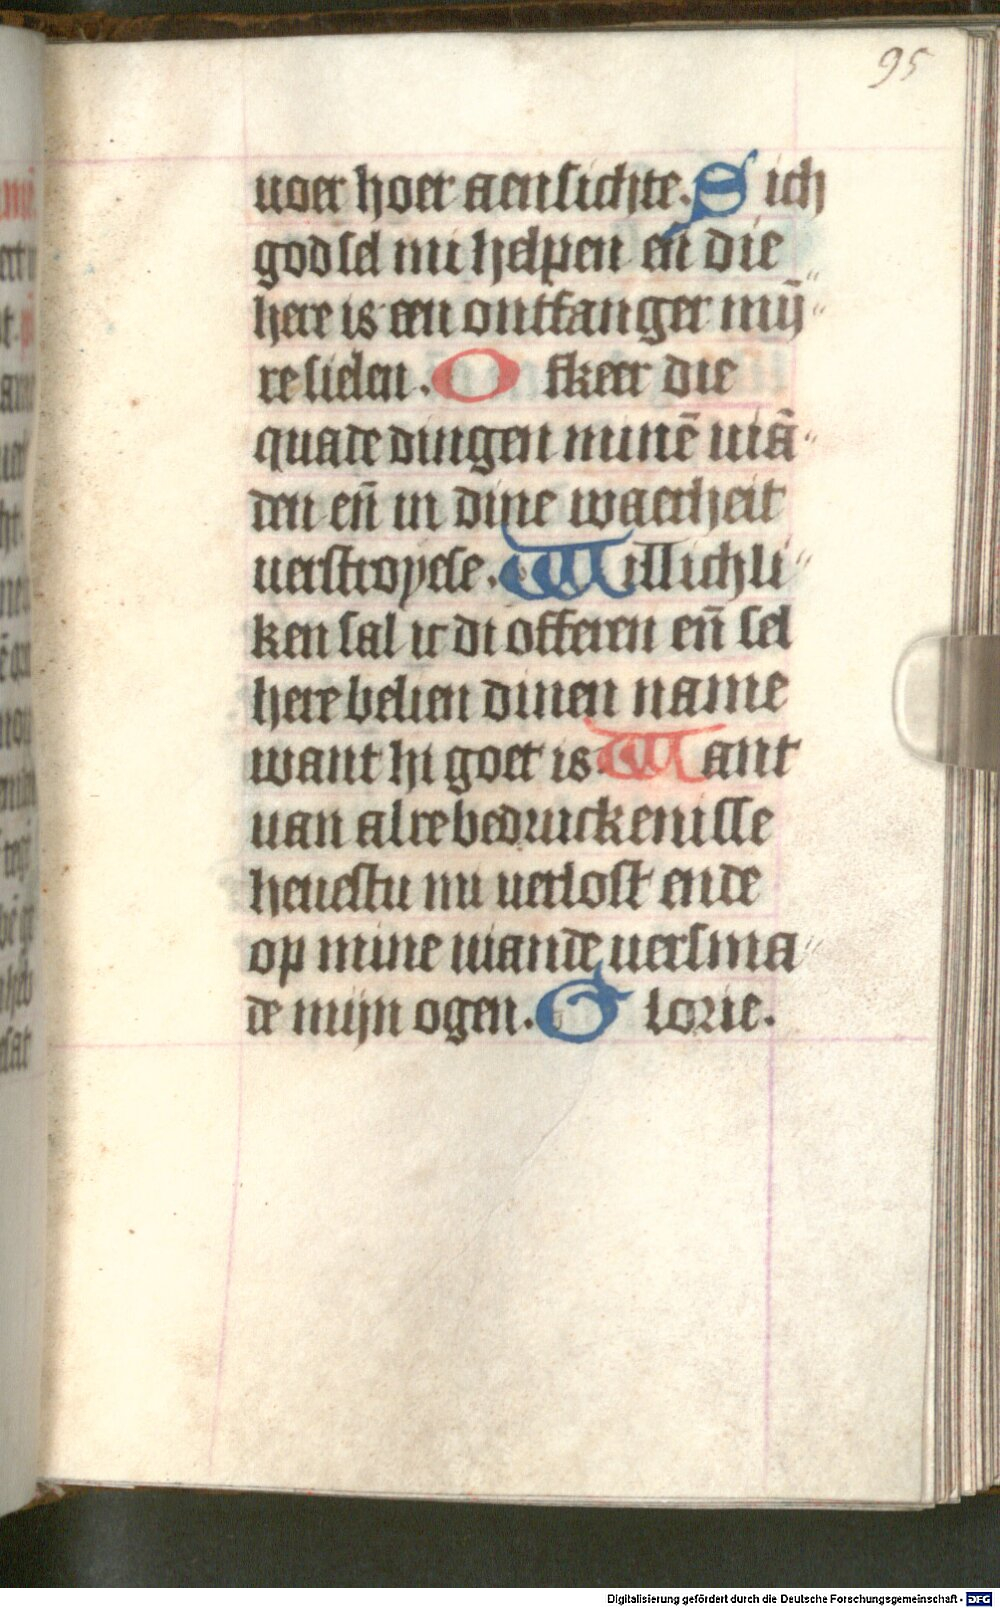 95
uoer hoer aensichte. Sich
god sel mi helpen eñ die
here is een ontfanger mÿ〃
re sielen. Ofkeer die
quade dingen minē uiā〃
den eñ in dine waerheit
uerstroyese. Willichli〃
ken sal ic di offeren eñ sel
here belien dinen name
want hi goet is. Want
uan alre bedruckenisse
heuestu mi uerlost ende
op mine uiande uersma〃
de mijn ogen. Glorie.
Digitalisierung gefördert durch die Deutsche Forschungsgemeinschaft - DFG